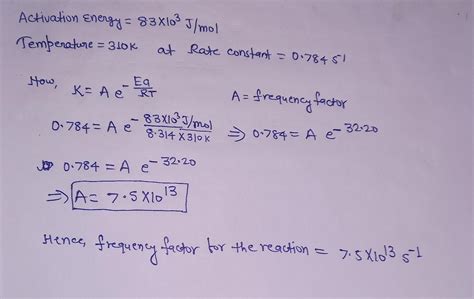 Activation Energy = 83×10³ J/mol
Temperature = 310K at Rate constant = 0.784 s1
Now, K = A e^-Ea/RT A = frequency factor
0.784 = A e^-83×10³ J/mol / 8.314×310K ⇒ 0.784 = A e^-32.20
0.784 = A e^-32.20
⇒ A = 7.5×10^13
Hence, frequency factor for the reaction = 7.5×10^13 s^-1